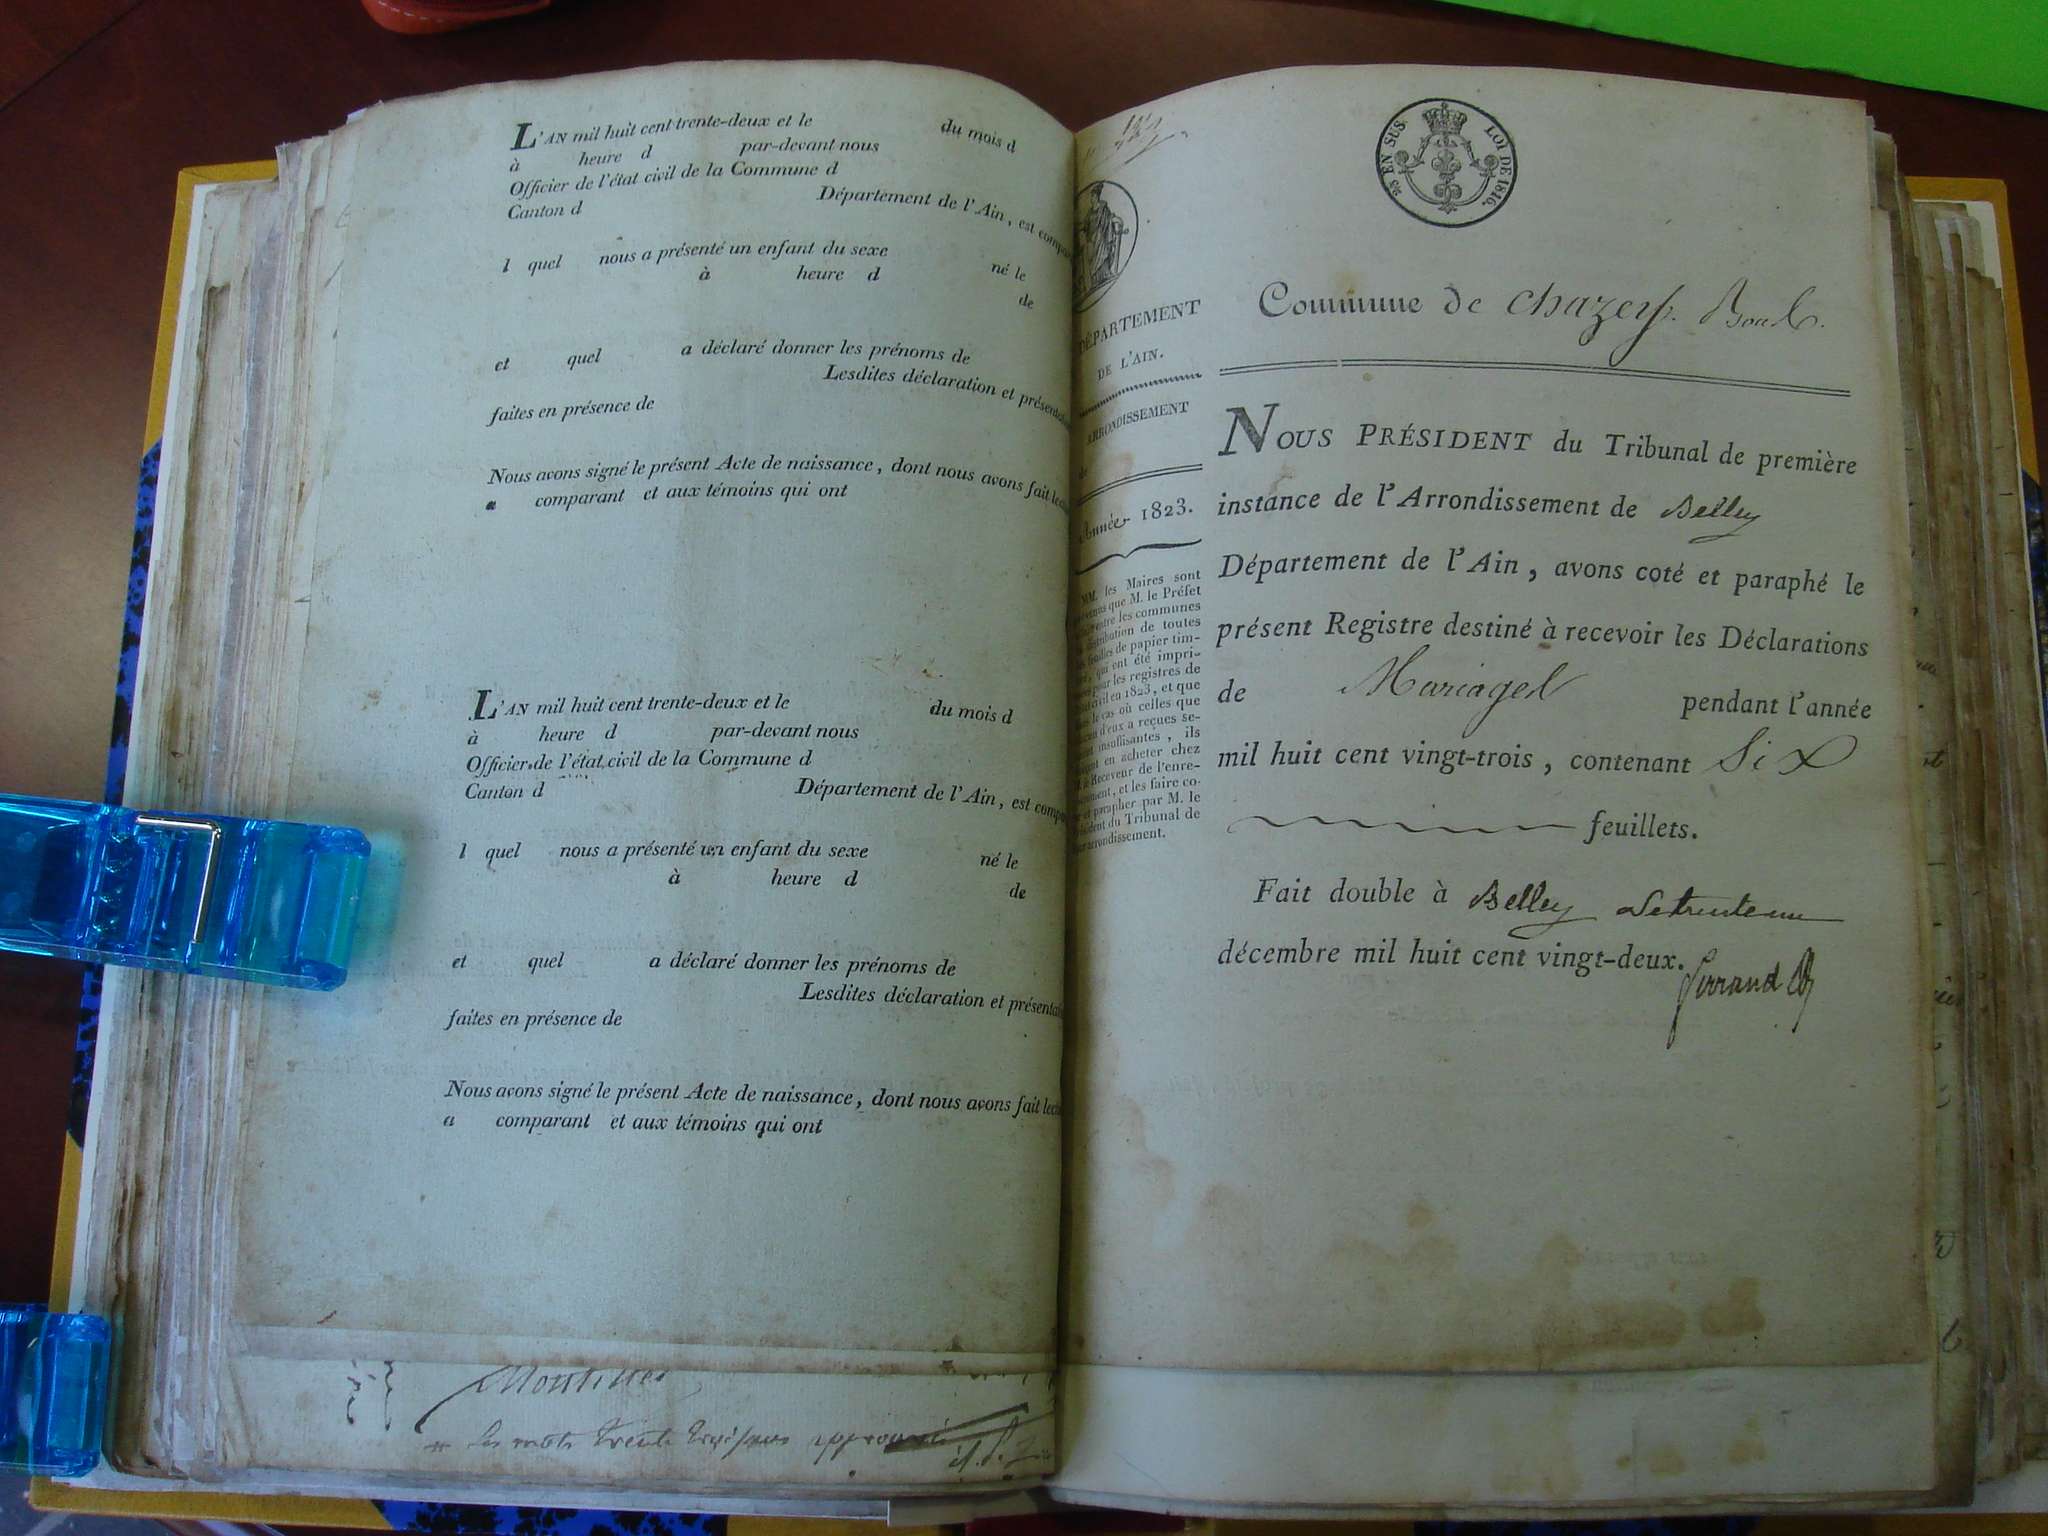 L'AN mil huit cent trente-deux et le du mois d
à heure d par-devant nous
Officier de l'état civil de la Commune d
Canton d Département de l'Ain, est
l quel nous a présenté un enfant du sexe
né le
à heure d
de
et quel a déclaré donner les prénoms de
Lesdites déclaration et
faites en présence de
Nous avons signé le présent Acte de naissance, dont nous avons fait
a comparant et aux témoins qui ont
L'AN mil huit cent trente-deux et le du mois d
à heure d par-devant nous
Officier de l'état civil de la Commune d
Canton d Département de l'Ain, est
l quel nous a présenté un enfant du sexe
né le
à heure d
de
et quel a déclaré donner les prénoms de
Lesdites déclaration et
faites en présence de
Nous avons signé le présent Acte de naissance, dont nous avons fait
a comparant et aux témoins qui ont
les mots trente
EN SUS LOI DE 1816.
DÉPARTEMENT
DE L'AIN.
ARRONDISSEMENT
de
Année 1823.
MM. les Maires sont
que M. le Préfet
entre les communes
distribution de toutes
feuilles de papier tim-
qui ont été impri-
pour les registres de
civil en 1823, et que
le cas où celles que
d'eux a reçues se-
insuffisantes, ils
en acheter chez
Receveur de l'enre-
et les faire co-
et parapher par M. le
Tribunal de
arrondissement.
Commune de Chazey
NOUS PRÉSIDENT du Tribunal de première
instance de l'Arrondissement de Belley
Département de l'Ain, avons coté et paraphé le
présent Registre destiné à recevoir les Déclarations
de Mariages pendant l'année
mil huit cent vingt-trois, contenant Six
feuillets.
Fait double à Belley le trente un
décembre mil huit cent vingt-deux.